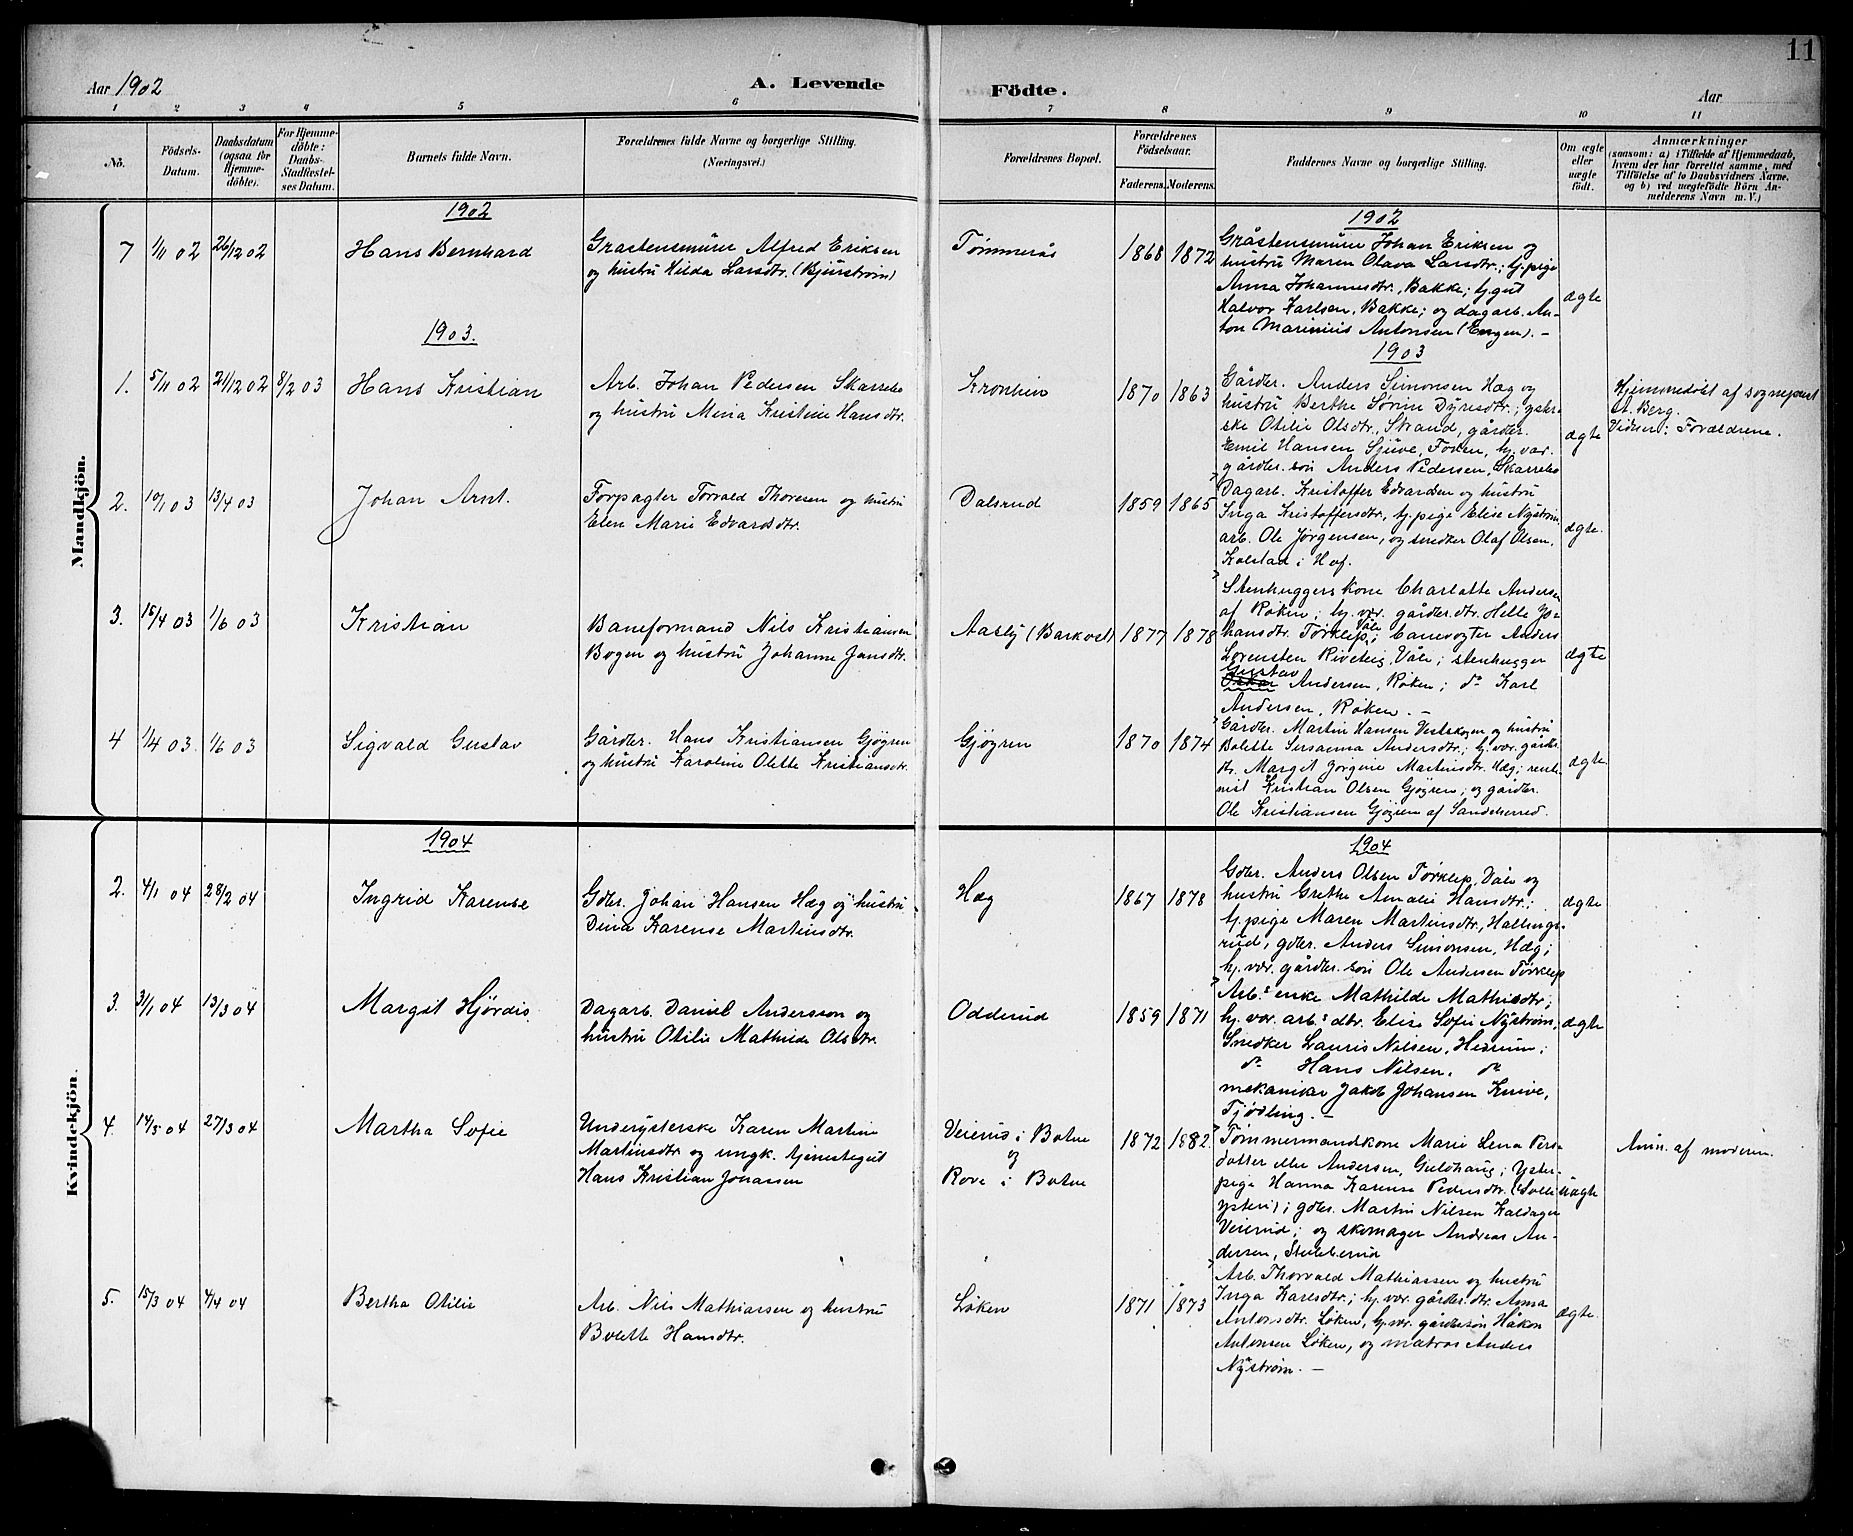 11
Aar 1902
A. Levende
Födte.
Aar
1 2 3 4 5 6 7 8 9 10 11
No.
Födsels-Datum.
Daabsdatum (ogsaa for Hjemmedöbte).
For Hjemmedöbte: Daabs-Stadfæstelses Datum.
Barnets fulde Navn.
Forældrenes fulde Navne og borgerlige Stilling. (Næringsvei.)
Forældrenes Bopæl.
Forældrenes Födselsaar.
Faderens. Moderens.
Faddernes Navne og borgerlige Stilling.
Om ægte eller uægte födt.
Anmærkninger
(saasom: a) i Tilfælde af Hjemmedaab,
hvem der har forrettet samme, med
Tilföielse af to Daabsvidners Navne,
og b) ved uægtefödte Börn An-
melderens Navn m. V.)
Mandkjön.
1902
1902
7 1/11 02 26/12 02 Hans Bernhard
Gråstensmurer Alfred Eriksen
og hustru Hilda Larsdtr. (Bjurstrøm)
Tømmerås 1868 1872
Gråstensmurer Johan Eriksen og
hustru Maren Olava Larsdtr.; tj.pige
Anna Johannesdtr. Bakke; tj.gut
Halvor Karlsen, Bakke; og dagarb. An-
ton Marinius Antonsen (Engen). -
ægte
1903.
1903
1. 5/11 02 21/12 02 8/2 03 Hans Kristian
Arb. Johan Pedersen Skarrebo
og hustru Mina Kristine Hansdtr.
Kronlien 1870 1863
Gårdbr. Anders Simonsen Hæg og
hustru Berthe Sørine Dyresdtr.; yster-
ske Otilie Olsdtr., Strand, gårdbr.
Emil Hansen Sjuve, Foden, hj. vær.
gårdbr. søn Anders Pedersen, Skarrebo
ægte
Hjemmedøbt af sogneprest
A. Berg.
Vidner: Forældrene.
2. 10/1 03 13/4 03 Johan Arnt.
Forpagter Torvald Thoresen og hustru
Elen Marie Edvardsdtr.
Dalsrud 1859 1865
Dagarb. Kristoffer Edvardsen og hustru
Inga Kristoffersdtr., tj.pige Elise Nystrøm,
arb. Ole Jørgensen, og snedker Olaf Olsen,
Kolstad i Hof.
ægte.
3. 15/4 03 1/6 03 Kristian
Baneformand Nils Kristiansen
Bogen og hustru Johanne Jansdtr.
Aasly (Barkvel) 1877 1878
Stenhuggerskone Charlotte Andersen
af Røken; hj. vær. gårdbr.dtr. Helle Jo-
hansdtr. Tørklep, Våle; banevogter Anders
Lorensten Riveteig, Våle; stenhugger
Gustav Andersen, Røken; do Karl
Andersen, Røken. -
ægte
4 1/4 03. 1/6 03 Sigvald Gustav
Gårdbr. Hans Kristiansen Gjøgren
og hustru Karoline Olette Kristiansdtr.
Gjøgren 1870 1874
Gårdbr. Martin Hansen Vestskogen og hustru
Bolette Susanna Andersdtr.; hj. vær. gårdbr.
dtr. Margit Jørgine Martinsdtr. Hæg; rent-
nist Kristian Olsen Gjøgren; og gårdbr.
Ole Kristiansen Gjøgren af Sandeherred.
ægte
Kvindekjön.
1904
1904
2. 4/1 04 28/2 04 Ingrid Karense
Gdbr. Johan Hansen Hæg og hustru
Dina Karense Martinsdtr.
Hæg 1867 1878
Gdbr. Anders Olsen Tørklep, Våle og
hustru Grethe Amalie Hansdtr.;
tj.pige Maren Martinsdtr., Hallings-
rud; gdbr. Anders Simonsen, Hæg;
hj. vær. gårdbr. søn Ole Andersen Tørklep
ægte
3. 31/1 04 13/3 04 Margit Hjørdis.
Dagarb. Daniel Andersson og
hustru Otilie Mathilde Olsdtr.
Odderud 1859 1871
Arb.s enke Mathilde Mathisdtr;
hj. vær. arb.s dtr. Elise Sofie Nystrøm,
Snedker Lauris Nilsen, Hedrum;
do Hans Nilsen, do
mekaniker Jakob Johansen Knive,
Tjødling. -
ægte
4. 14/3 04 27/3 04 Martha Sofie
Underysterske Karen Martine
Martinsdtr og ungk. tjenestegut
Hans Kristian Johansen
Veierud i Botne
og
Rove i Botne
1872 1882.
Tømmermandskone Marie Lena Pers-
datter eller Andersen, Guldhaug; Yster-
pige Hanna Karense Pedersdtr. (Solli
ysteri); gdbr. Martin Nilsen Kaldager
Veierud; og skomager Andreas An-
dersen, Stubberud
uægte
Anm. af moderen.
5. 15/3 04 4/4 04 Bertha Otilie
Arb. Nils Mathiassen og hustru
Bolette Hansdtr.
Løken 1871 1873
Arb. Thorvald Mathiassen og hustru
Inga Karlsdtr.; hj. vær. gårdbr. dtr. Anna
Antonsdtr. Løken, hj. vær. gårdbrsøn Håkon
Antonsen Løken, og matros Anders
Nystrøm. -
ægte.